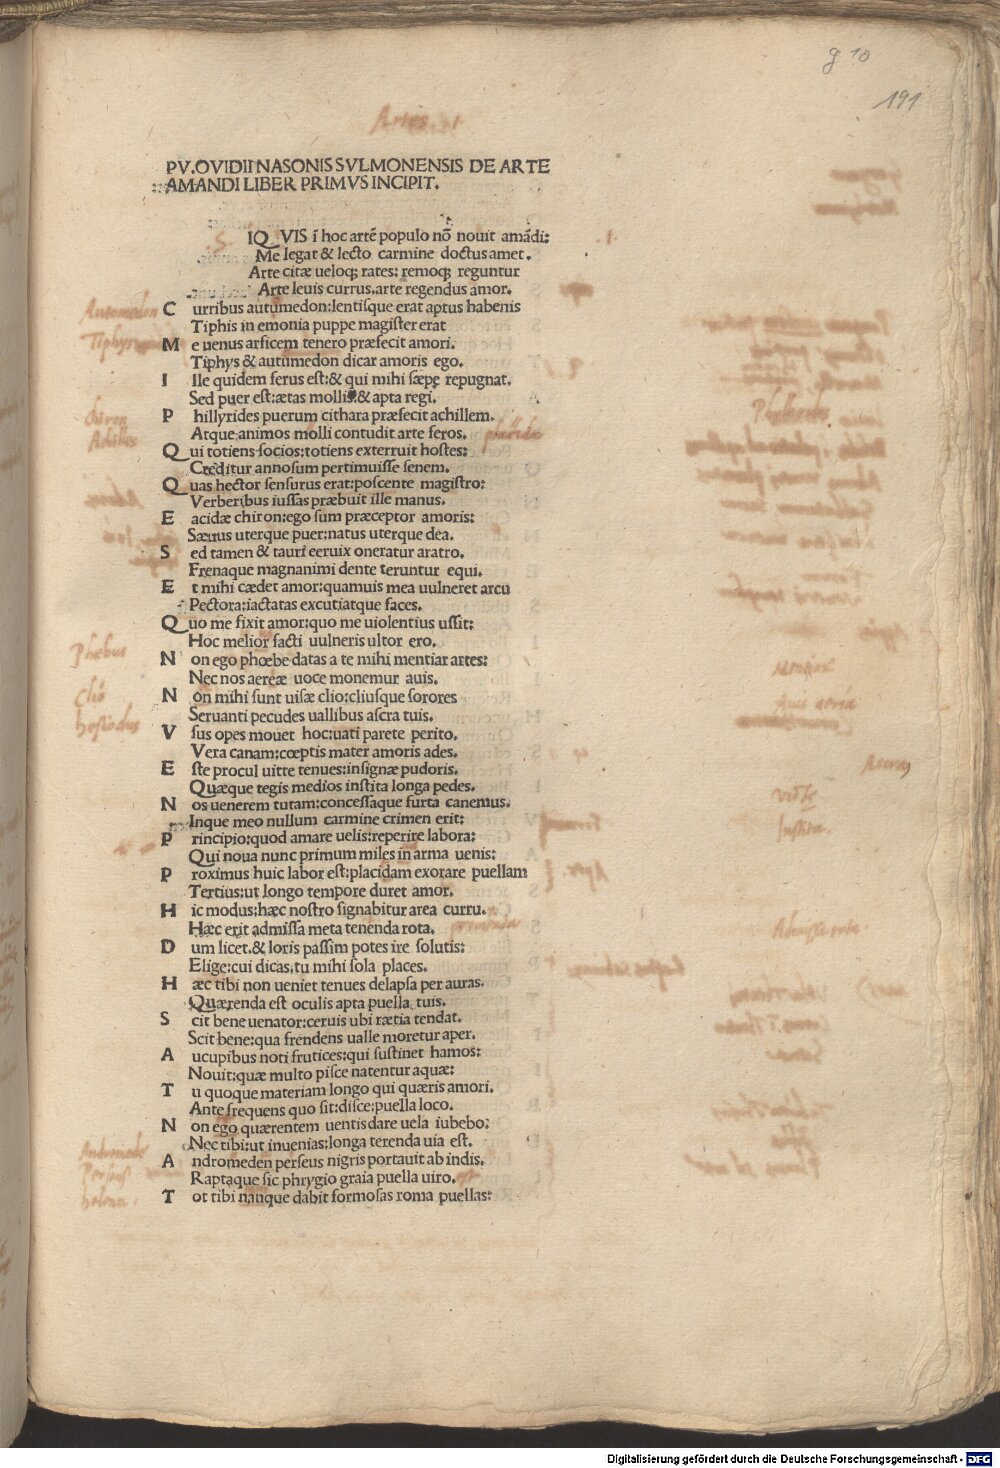 g 10
191
Artis 1
PV. OVIDII NASONIS SVLMONENSIS DE ARTE
AMANDI LIBER PRIMVS INCIPIT.
S IQVIS ī hoc artē populo nō nouit amādi:
Me legat & lecto carmine doctus amet.
Arte citæ ueloqʒ rates: remoqʒ reguntur
Arte leuis currus. arte regendus amor.
Automedon C urribus autumedon: lentisque erat aptus habenis
Tiphys Tiphis in emonia puppe magister erat
M e uenus arsicem tenero præfecit amori.
Tiphys & autumedon dicar amoris ego.
I lle quidem ferus est: & qui mihi sæpe repugnat.
Sed puer est: ætas mollis & apta regi.
Chiron P hillyrides puerum cithara præfecit achillem. Phyllerides
Achilles Atque animos molli contudit arte feros. placida
Q ui totiens socios: totiens exterruit hostes:
Creditur annosum pertimuisse senem.
Q uas hector sensurus erat: poscente magistro:
Verberibus iussas præbuit ille manus.
E acidæ chiron: ego sum præceptor amoris:
Sæuus uterque puer: natus uterque dea.
S ed tamen & tauri ceruix oneratur aratro.
Frenaque magnanimi dente teruntur equi.
E t mihi cædet amor: quamuis mea uulneret arcu
Pectora: iactatas excutiatque faces.
Q uo me fixit amor: quo me uiolentius ussit:
Hoc melior facti uulneris ultor ero.
Phebus N on ego phœbe datas a te mihi mentiar artes:
Nec nos aereæ uoce monemur auis. Auis aeria
Clio N on mihi sunt uisæ clio: cliusque sorores
hesiodus Seruanti pecudes uallibus ascra tuis.
V sus opes mouet hoc: uati parete perito.
Vera canam: cœptis mater amoris ades.
E ste procul uitte tenues: insignæ pudoris. Ascra
Quæque tegis medios instita longa pedes. Vitte
N os uenerem tutam: concessaque furta canemus.
Inque meo nullum carmine crimen erit: Instita.
P rincipio: quod amare uelis: reperire labora:
Qui noua nunc primum miles in arma uenis:
P roximus huic labor est: placidam exorare puellam
Tertius: ut longo tempore duret amor.
H ic modus: hæc nostro signabitur area curru.
Hæc erit admissa meta tenenda rota. premenda Admissa rota.
D um licet. & loris passim potes ire solutis:
Elige: cui dicas. tu mihi sola places.
H æc tibi non ueniet tenues delapsa per auras.
Quærenda est oculis apta puella tuis.
S cit bene uenator: ceruis ubi rætia tendat.
Scit bene: qua frendens ualle moretur aper.
A ucupibus noti frutices: qui sustinet hamos:
Nouit: quæ multo pisce natentur aquæ:
T u quoque materiam longo qui quæris amori.
Ante frequens quo sit: disce: puella loco.
N on ego quærentem uentis dare uela iubebo:
Andromede Nec tibi: ut inuenias: longa terenda uia est.
Perseus A ndromeden perseus nigris portauit ab indis.
helena. Raptaque sic phrygio graia puella uiro.
T ot tibi nanque dabit formosas roma puellas:
Digitalisierung gefördert durch die Deutsche Forschungsgemeinschaft - DFG